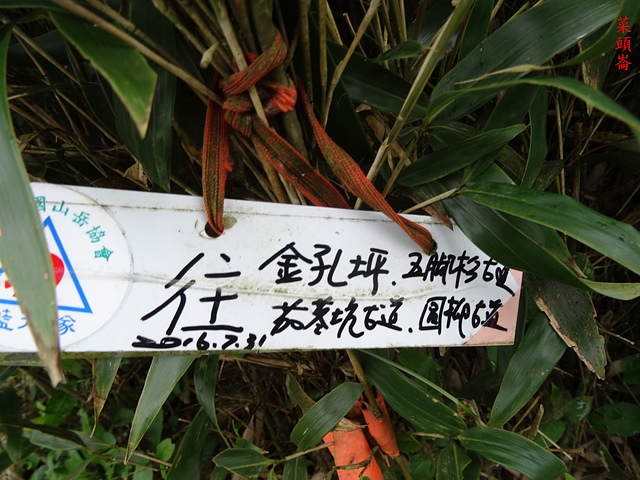 菜頭崙
山岳協會
往 金孔坪.五腳松古道
茄苳坑古道.圓柳古道
2016.7.31